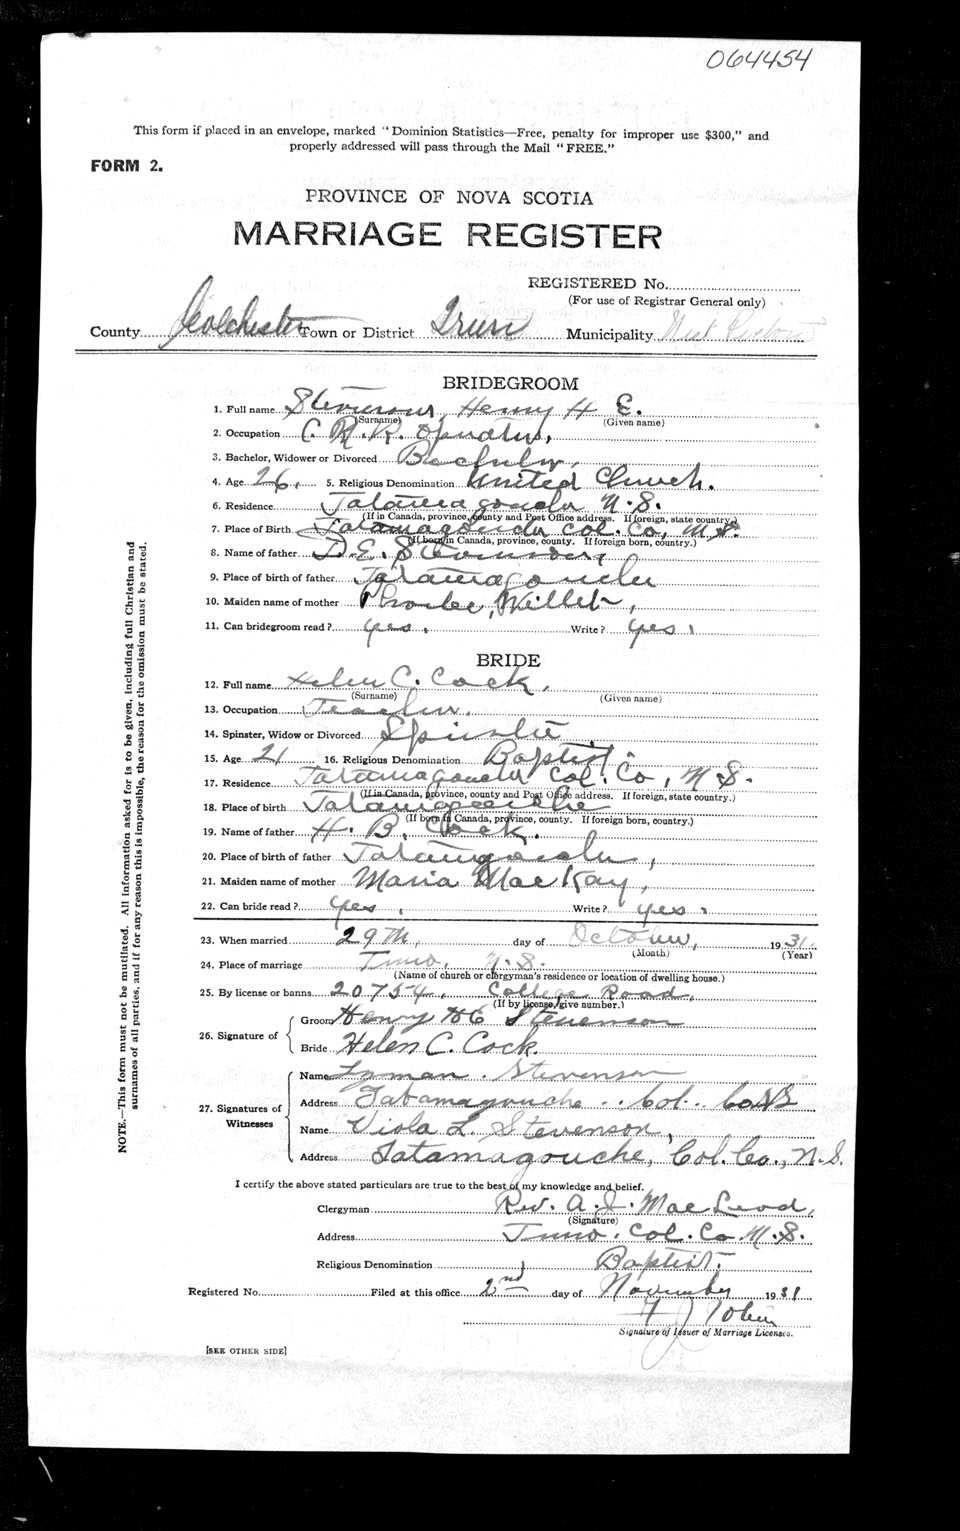 064454
This form if placed in an envelope, marked "Dominion Statistics—Free, penalty for improper use $300," and
properly addressed will pass through the Mail "FREE."
FORM 2.
PROVINCE OF NOVA SCOTIA
MARRIAGE REGISTER
REGISTERED No.
(For use of Registrar General only)
County Colchester Town or District Truro Municipality West
BRIDEGROOM
1. Full name Stevenson, Henry H E.
(Surname) (Given name)
2. Occupation C. N. R. Operator,
3. Bachelor, Widower or Divorced Bachelor,
4. Age 26. 5. Religious Denomination United Church.
6. Residence Tatamagouche N. S.
(If in Canada, province, county and Post Office address. If foreign, state country.)
7. Place of Birth Tatamagouche Col. Co, N. S.
(If born in Canada, province, county. If foreign born, country.)
8. Name of father D. E. Stevenson,
9. Place of birth of father Tatamagouche
10. Maiden name of mother Phoebe, Millet,
11. Can bridegroom read? yes. Write? yes.
BRIDE
12. Full name Helen C. Cock,
(Surname) (Given name)
13. Occupation Teacher.
14. Spinster, Widow or Divorced Spinster
15. Age 21 16. Religious Denomination Baptist
17. Residence Tatamagouche Col. Co, N. S.
(If in Canada, province, county and Post Office address. If foreign, state country.)
18. Place of birth Tatamagouche
(If born in Canada, province, county. If foreign born, country.)
19. Name of father H. B. Cock.
20. Place of birth of father Tatamagouche,
21. Maiden name of mother Maria MacKay,
22. Can bride read? yes, Write? yes.
23. When married 29th, day of October, 1931.
(Month) (Year)
24. Place of marriage Truro, N. S.
(Name of church or clergyman's residence or location of dwelling house.)
25. By license or banns 20754. College Road.
(If by license, give number.)
26. Signature of Groom Henry H E Stevenson
Bride Helen C. Cock.
27. Signatures of Witnesses
Name Lyman. Stevenson
Address Tatamagouche .. Col.. Co NS
Name Viola L. Stevenson,
Address Tatamagouche, Col. Co., N. S.
I certify the above stated particulars are true to the best of my knowledge and belief.
Clergyman Rev. A. J. MacLeod,
(Signature)
Address Truro. Col. Co N. S.
Religious Denomination Baptist.
Registered No. Filed at this office 2nd day of November 1931
Signature of Issuer of Marriage Licenses.
[SEE OTHER SIDE]
NOTE.—This form must not be mutilated. All information asked for is to be given, including full Christian and
surnames of all parties, and if for any reason this is impossible, the reason for the omission must be stated.